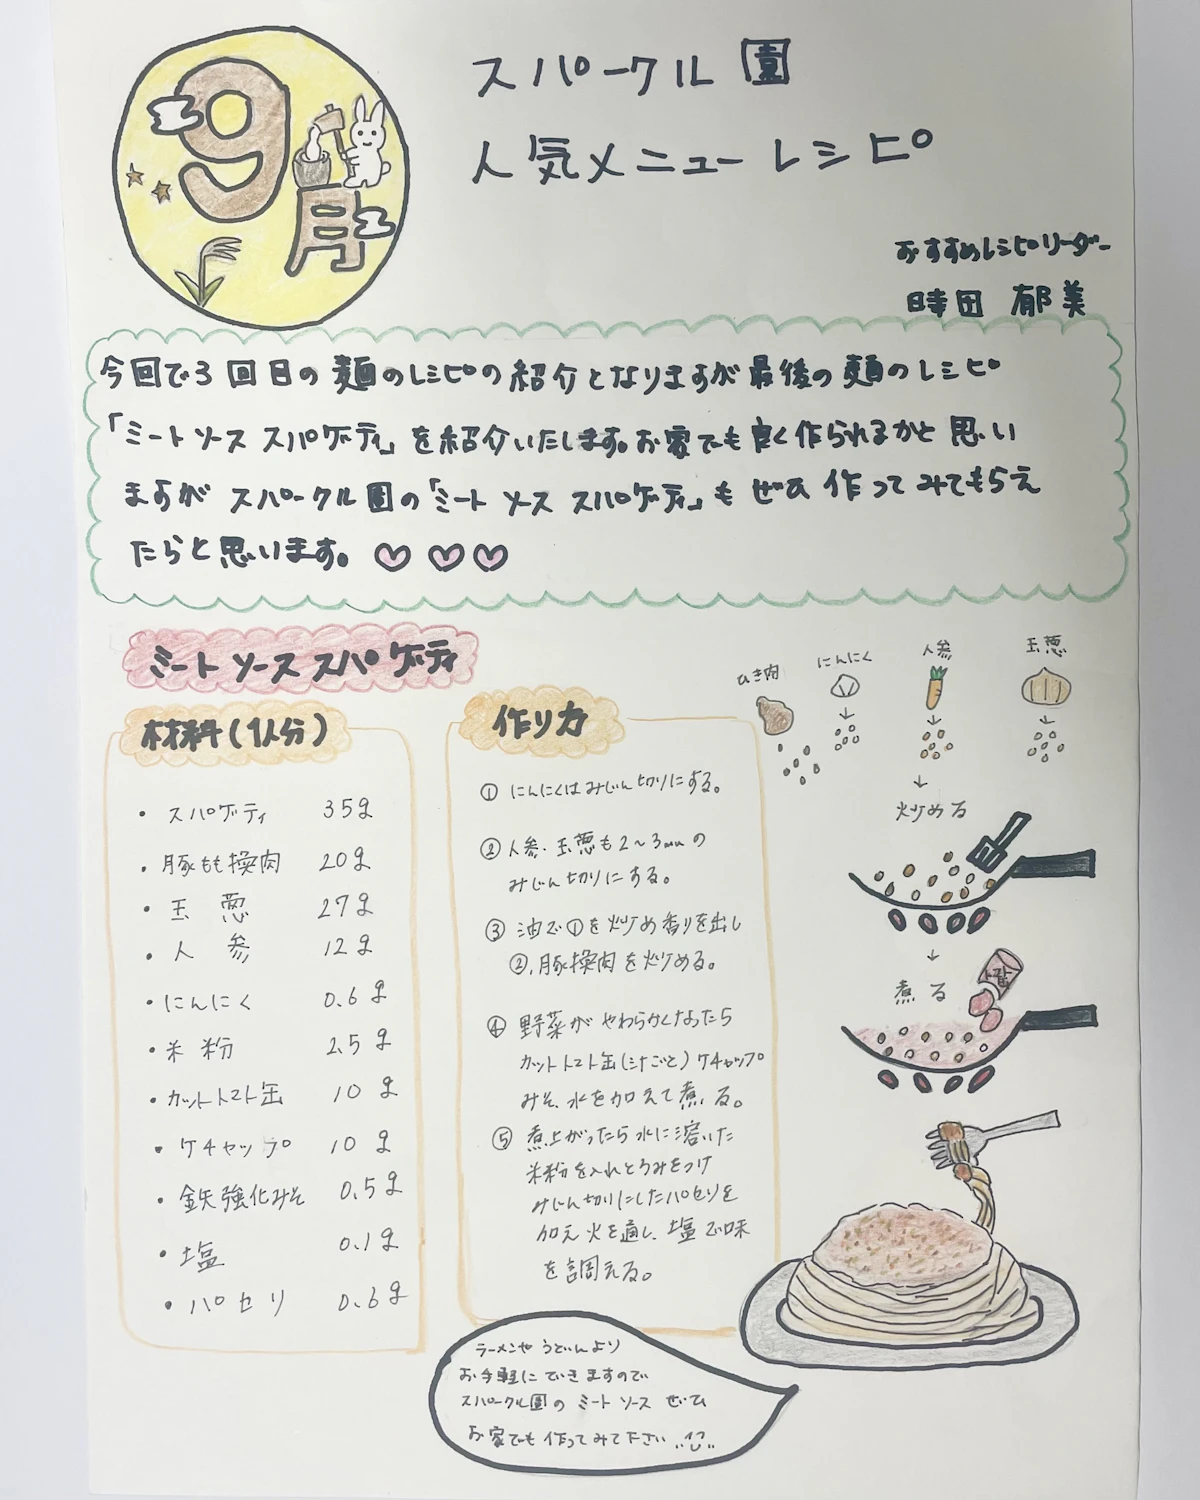 9月
スパークル園
人気メニューレシピ
おすすめレシピリーダー
時田 郁美
今回で3回目の麺のレシピの紹介となりますが最後の麺のレシピ
「ミートソーススパゲティ」を紹介いたします。お家でも良く作られるかと思い
ますがスパークル園の「ミートソーススパゲティ」もぜひ作ってみてもらえ
たらと思います。♡♡♡
ミートソーススパゲティ
材料(1人分)
・スパゲティ 35g
・豚もも挽肉 20g
・玉葱 27g
・人参 12g
・にんにく 0.6g
・米粉 2.5g
・カットトマト缶 10g
・ケチャップ 10g
・鉄強化みそ 0.5g
・塩 0.1g
・パセリ 0.6g
作り方
① にんにくはみじん切りにする。
② 人参・玉葱も2〜3mmの
みじん切りにする。
③ 油で①を炒め香りを出し
②、豚挽肉を炒める。
④ 野菜がやわらかくなったら
カットトマト缶(汁ごと)ケチャップ
みそ、水を加えて煮る。
⑤ 煮上がったら水に溶いた
米粉を入れとろみをつけ
みじん切りにしたパセリを
加え火を通し、塩で味
を調える。
ひき肉
にんにく
人参
玉葱
↓
炒める
↓
煮る
ラーメンやうどんより
お手軽にできますので
スパークル園のミートソースぜひ
お家でも作ってみて下さい